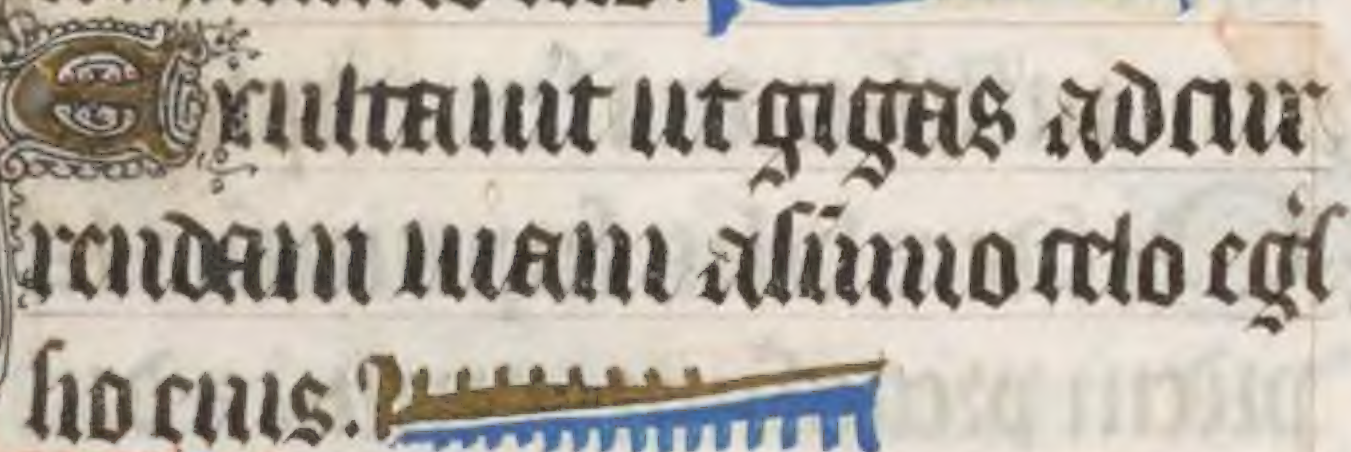 Exultauit ut gigas ad cur
rendam uiam a sum̄o celo egr̄ſ
ſio eius.